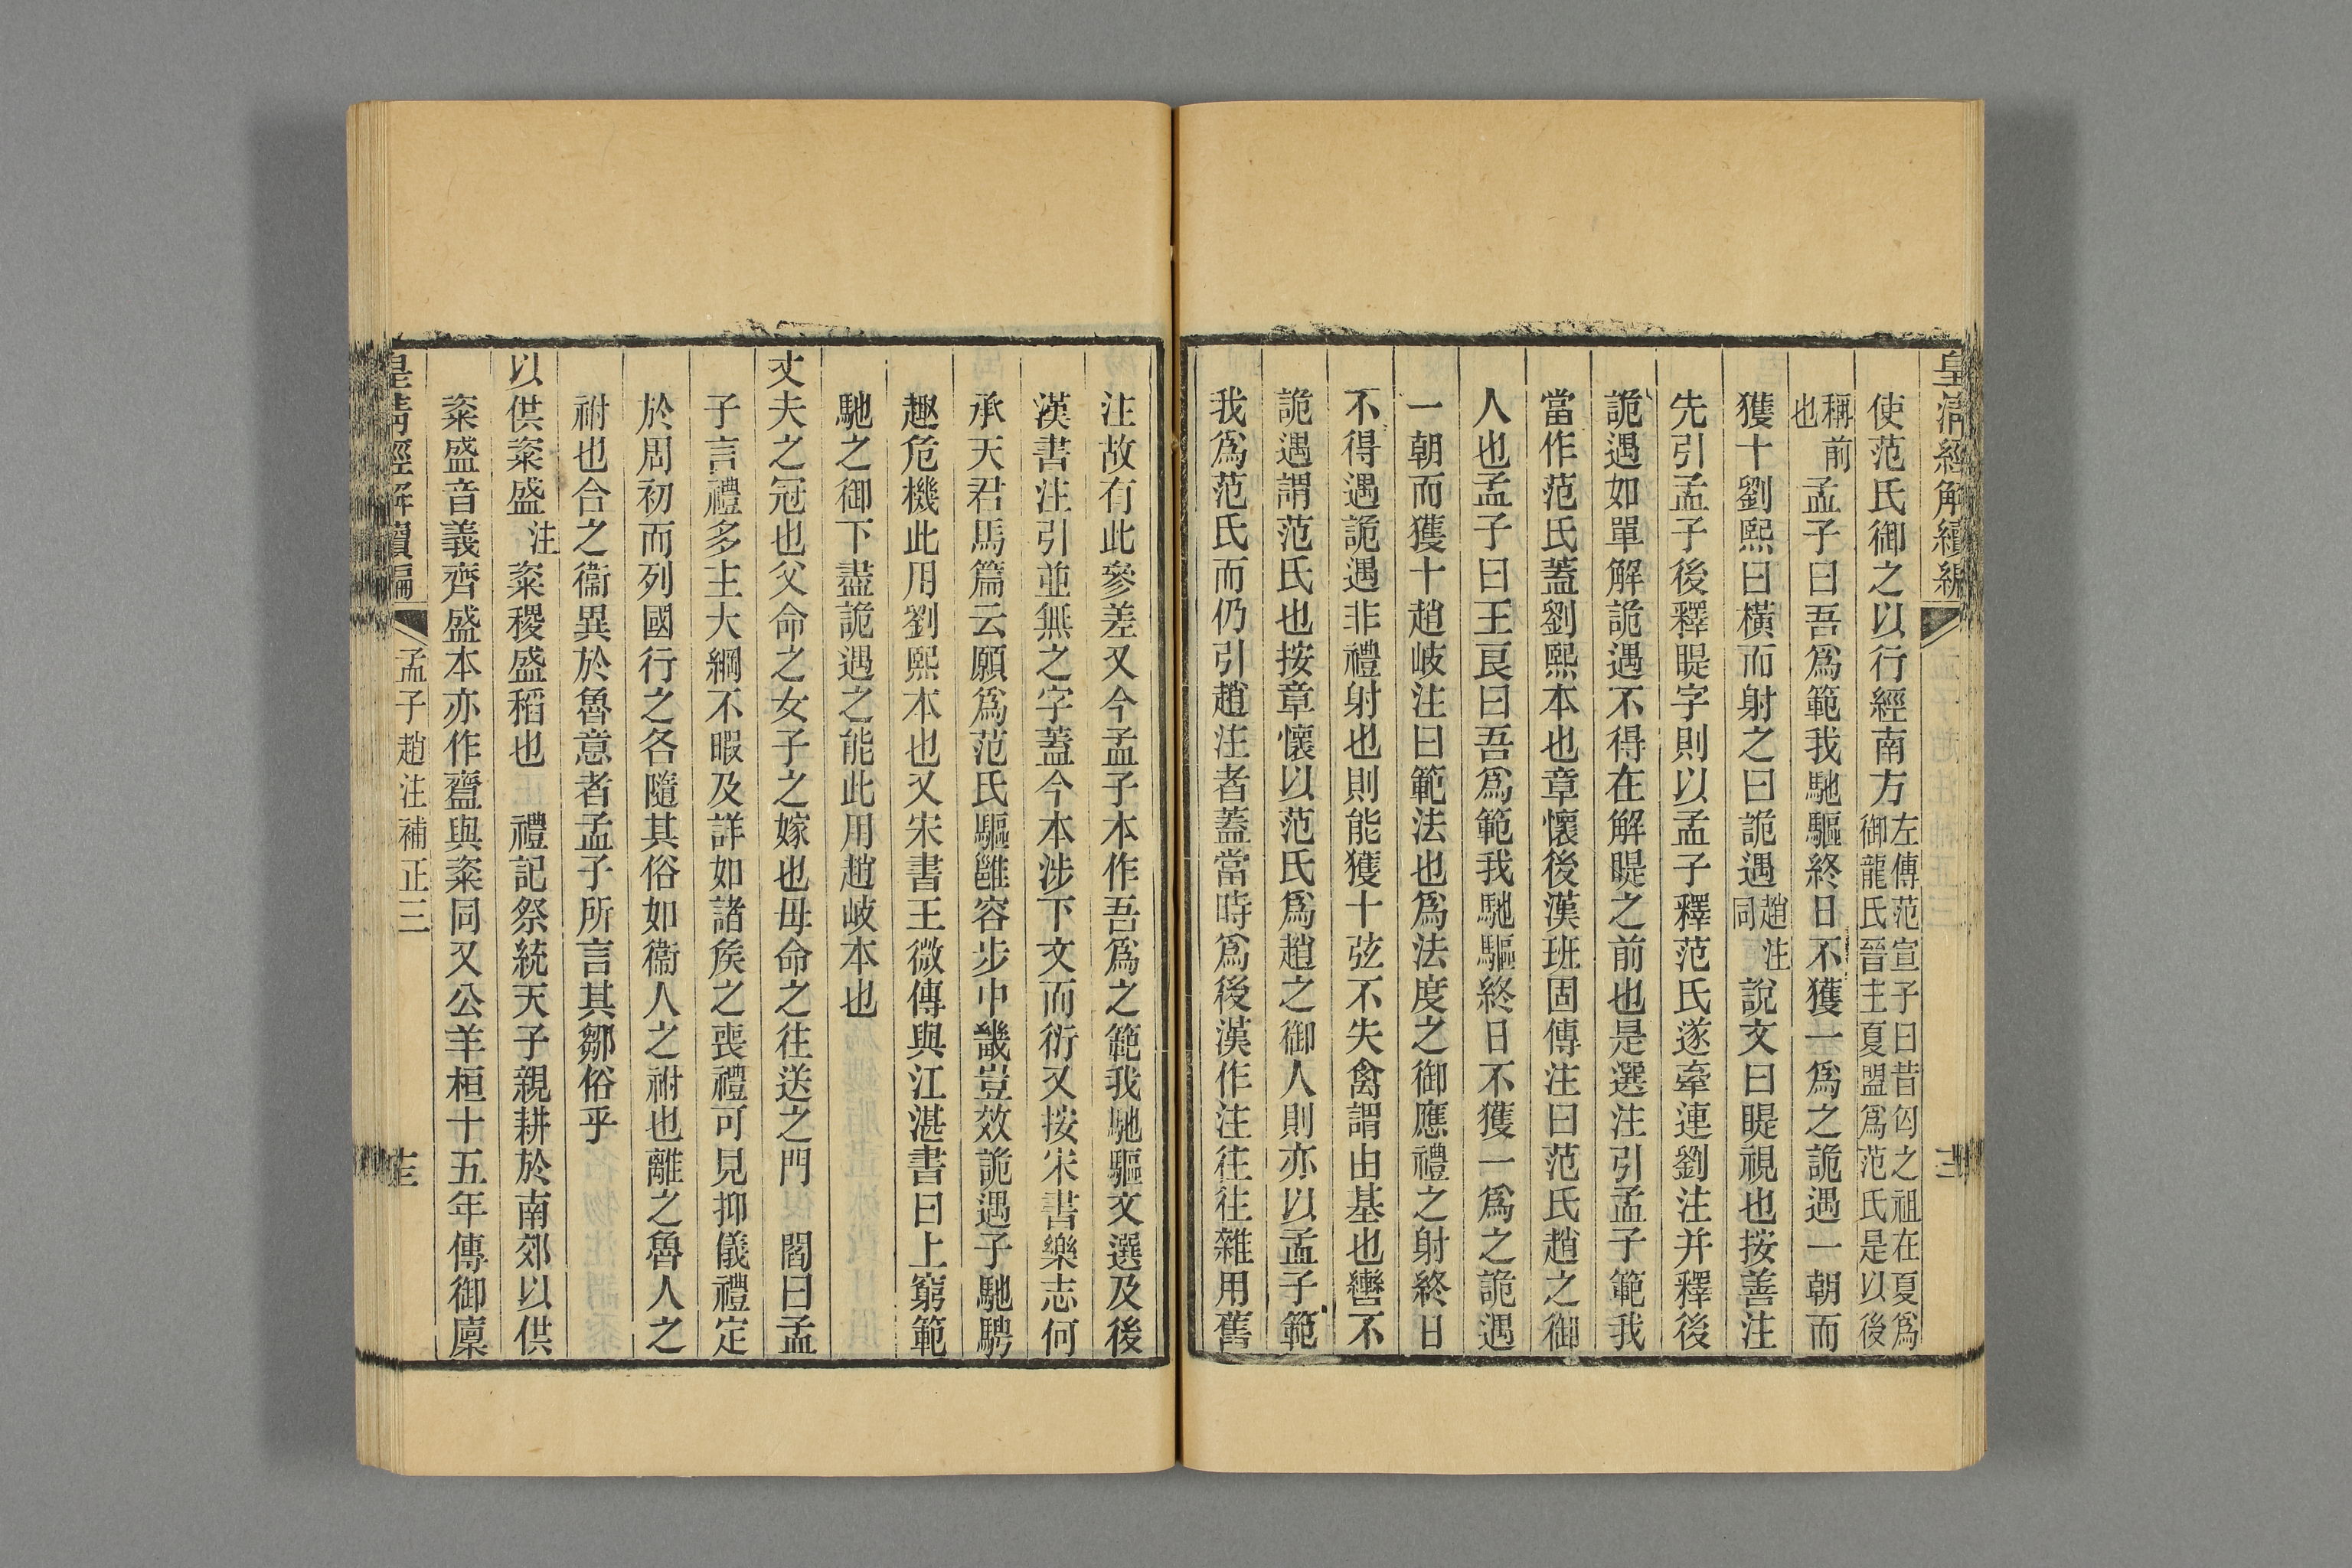 皇清經解續編
使范氏御之以行經南方左傳范宣子曰昔匄之祖在夏爲御龍氏晉主夏盟爲范氏是以後
稱前也孟子曰吾爲範我馳驅終日不獲一爲之詭遇一朝而
獲十劉熙曰橫而射之曰詭遇趙注同說文曰睼視也按善注
先引孟子後釋睼字則以孟子釋范氏遂牽連劉注并釋後
詭遇如單解詭遇不得在解睼之前也是選注引孟子範我
當作范氏蓋劉熙本也章懷後漢班固傳注曰范氏趙之御
人也孟子曰王良曰吾爲範我馳驅終日不獲一爲之詭遇
一朝而獲十趙岐注曰範法也爲法度之御應禮之射終日
不得遇詭遇非禮射也則能獲十弦不失禽謂由基也轡不
詭遇謂范氏也按章懷以范氏爲趙之御人則亦以孟子範
我爲范氏而仍引趙注者蓋當時爲後漢作注往往雜用舊
注故有此參差又今孟子本作吾爲之範我馳驅文選及後
漢書注引並無之字蓋今本涉下文而衍又按宋書樂志何
承天君馬篇云願爲范氏驅雝容步中畿豈效詭遇子馳騁
趣危機此用劉熙本也又宋書王微傳與江湛書曰上窮範
馳之御下盡詭遇之能此用趙岐本也
丈夫之冠也父命之女子之嫁也母命之往送之門 閻曰孟
子言禮多主大綱不暇及詳如諸矦之喪禮可見抑儀禮定
於周初而列國行之各隨其俗如衞人之祔也離之魯人之
祔也合之衞異於魯意者孟子所言其鄒俗乎
以供粢盛 注粢稷盛稻也 禮記祭統天子親耕於南郊以供
粢盛音義齊盛本亦作齍與粢同又公羊桓十五年傳御廩
皇清經解續編 孟子趙注補正三